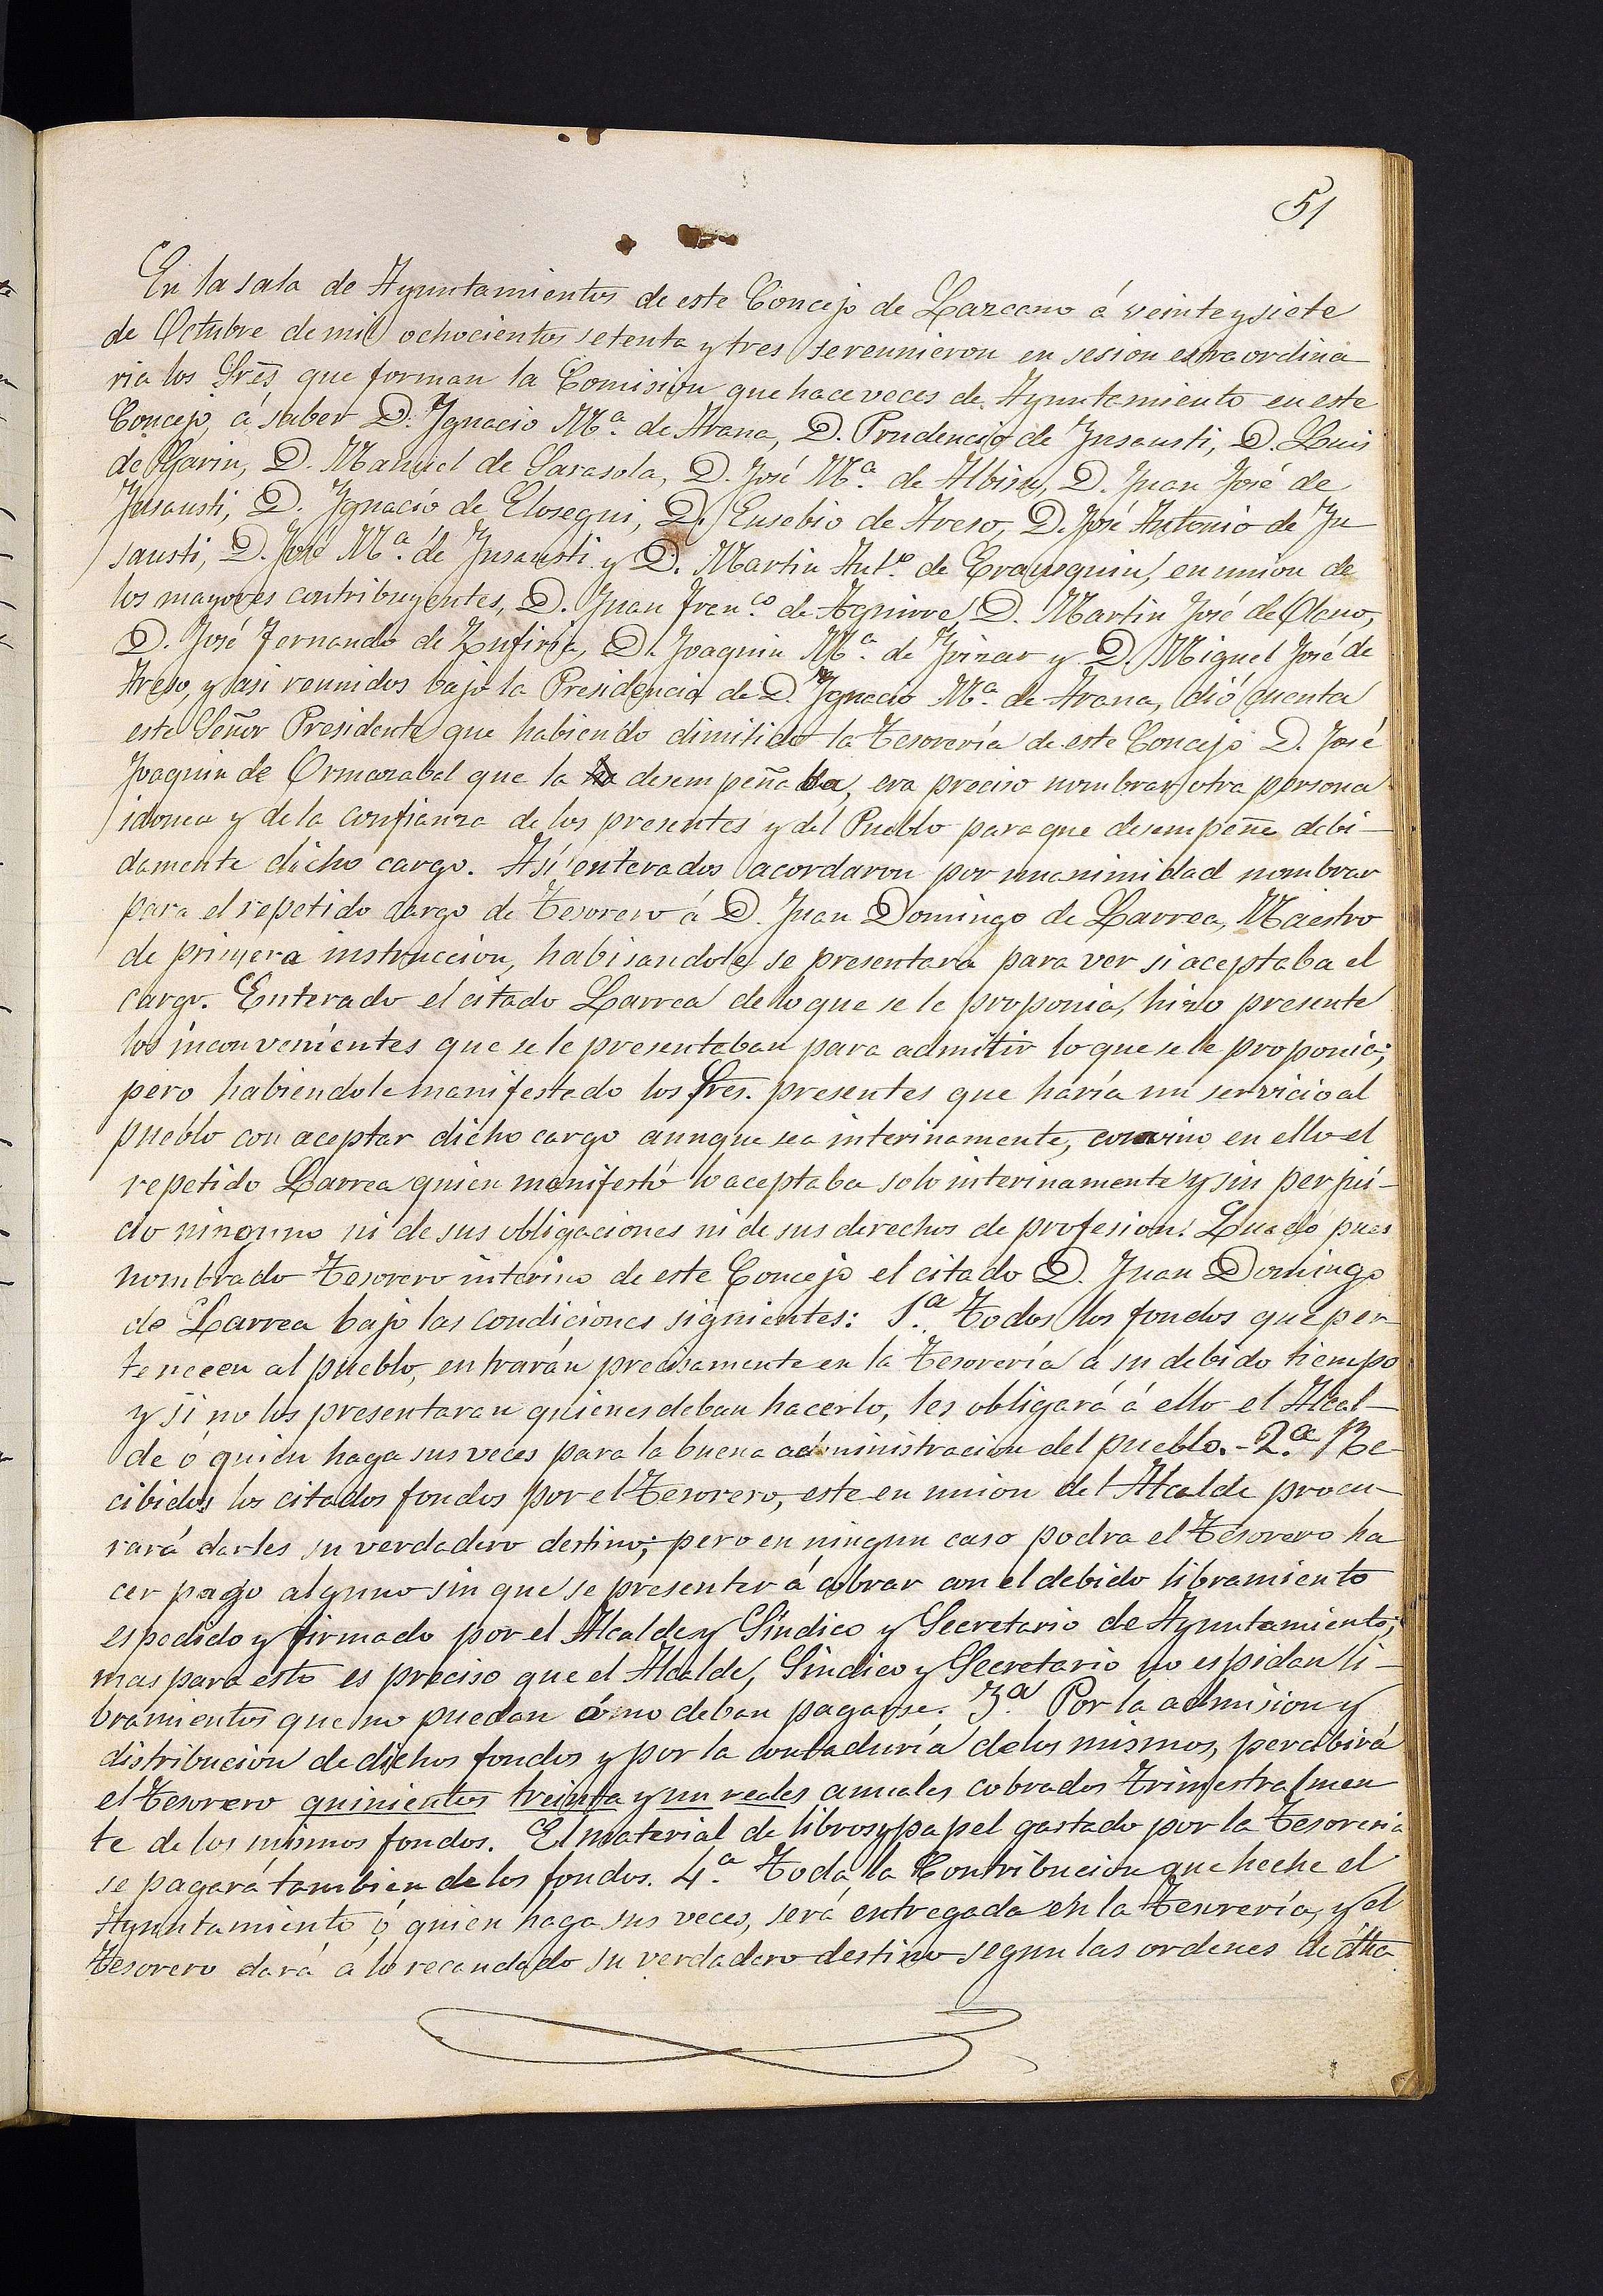 51
En la sala de Ayuntamientos de este Concejo de Lazcano á veinte y siete
de Octubre de mil ochocientos setenta y tres se reunieron en sesion estraordina
ria los Sres que forman la Comision que hace veces de Ayuntamiento en este
Concejo, á saber D. Ygnacio Mª. de Arana, D. Prudencio de Ynsausti, D. Luis
de Garin, D. Manuel de Sarasola, D. José Mª. de Albisu, D. Juan José de
Ynsausti, D. Ygnacio de Elosegui, D. Eusebio de Areso, D. José Antonio de Yn
sausti, D. José Mª. de Ynsausti y D. Martin Antº. de Erausquin, en union de
los mayores contribuyentes, D. Juan Franco. de Aguirre, D. Martin José de Olano,
D. José Fernando de Zufiria, D. Joaquin Mª. de Yrizar y D. Miguel José de
Areso, y asi reunidos bajo la Presidencia de D. Ygnacio Mª. de Arana, dió cuenta
este Señor Presidente que habiendo dimitido la Tesorería de este Concejo D. José
Joaquin de Ormazabal que la desempeñaba, era preciso nombrar otra persona
idonea y de la confianza de los presentes y del Pueblo para que desempeñe debi-
damente dicho cargo. Así enterados acordaron por unanimidad nombrar
para el repetido cargo de Tesorero á D. Juan Domingo de Larrea, Maestro
de primera instruccion, habisandole se presentara para ver si aceptaba el
cargo. Enterado el citado Larrea de lo que se le proponia, hizo presente
los inconvenientes que se le presentaban para admitir lo que se le proponia;
pero habiendole manifestado los Sres. presentes que haría un servicio al
pueblo con aceptar dicho cargo aunque sea interinamente, convino en ello el
repetido Larrea quien manifestó lo aceptaba solo interinamente y sin perjui-
cio ninguno ni de sus obligaciones ni de sus derechos de profesion. Quedó pues
nombrado Tesorero interino de este Concejo el citado D. Juan Domingo
de Larrea bajo las condiciones siguientes: 1.ª Todos los fondos que per-
tenecen al pueblo, entrarán precisamente en la Tesorería á su debido tiempo
y si no los presentaran quienes deban hacerlo, les obligará á ello el Alcal-
de ó quien haga sus veces para la buena administracion del pueblo.- 2.ª Re-
cibidos los citados fondos por el Tesorero, este en union del Alcalde procu-
rará darles su verdadero destino; pero en ningun caso podra el Tesorero ha
cer pago alguno sin que se presenter á cobrar con el debido libramiento
espedido y firmado por el Alcalde y Síndico y Secretario de Ayuntamiento;
mas para esto es preciso que el Alcalde, Síndico y Secretario no espidan li-
bramientos que no puedan ó no deban pagarse. 3.ª Por la admision y
distribucion de dichos fondos y por la contaduría de los mismos, percibirá
el Tesorero quinientos treinta y un reales anuales cobrados trimestralmen
te de los mismos fondos. El material de libros y papel gastado por la Tesoreria
se pagará tambien de los fondos. 4.ª Toda la Contribucion que heche el
Ayuntamiento, ó quien haga sus veces, será entregada en la Tesorería, y el
Tesorero dará á lo recaudado su verdadero destino segun las ordenes de dha